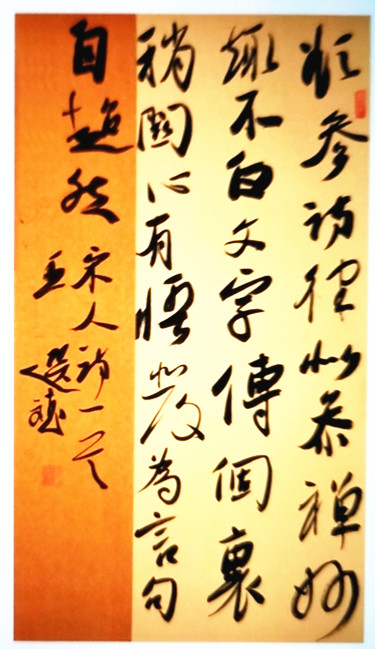 欲參詩律似參禪妙
趣不由文字傳個裏
稍關心有悟發為言句
自超然
宋人詩一首
王選